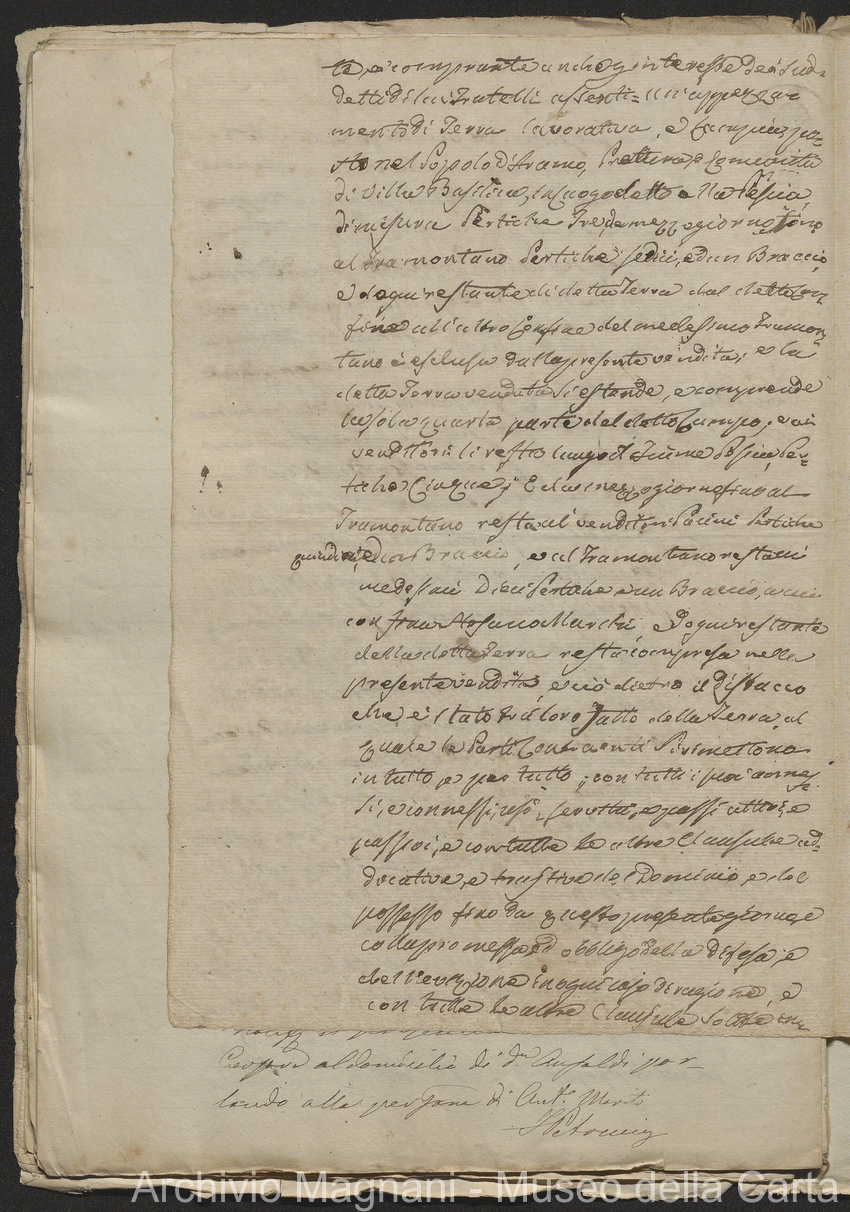 te, e comprante anche per interesse dei sud=
detti di lui Fratelli assenti= un appezza
mento di Terra lavorativa, e
sto nel Popolo d'Aramo, Pretura, e Comunità
di Villa Basilica, in luogo detto alla Pescia
di misura Pertiche Tre, da mezzogiorno fino
al Tramontano Pertiche sedici, ed un Braccio,
e dogni restante di detta Terra dal detto Con
fine all'altro Confine del medesimo Tramon
tano è esclusa dalla presente vendita; e la
detta Terra venduta si estende, e comprende
la sola quarta parte del detto Campo, e ai
venditori li resta lungo il Fiume Pescia Per=
tiche Cinque; E da mezzogiorno fino al
Tramontano resta ai venditori Pacini Pertiche
quindici, ed un Braccio, e al Tramontano resta ai
medesimi Dieci Pertiche e un Braccio, a
con Stefano Marchi e dogni restante
della detta Terra resta compresa nella
presente vendita, e ciò dietro il Distacco
che è stato trà loro fatto della Terra, al
quale le Parti Contraenti si rimettono
in tutto, e per tutto; con tutti i suoi annes
si, e connessi, usi, servitù, e passi attivi, e
passivi, e con tutte le altre Clausule ad=
docative, e traslative del Dominio, e del
possesso fino da questo presente giorno, e
colla promessa, ed obbligo della Difesa, e
dell'evizione in ogni caso di ragione, e
con tutte le altre Clausule solite
al domicilio di d.° Ansaldi par=
lando alla persona di Ant.°
Archivio Magnani - Museo della Carta